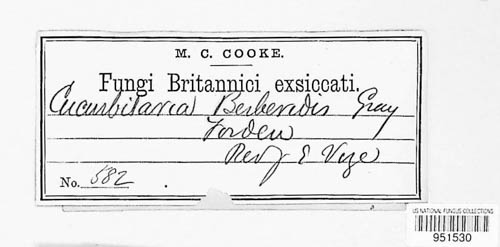 M. C. COOKE.
Fungi Britannici exsiccati.
Cucurbitaria Berberidis Gray
Forden
Rev J E Vize
No. 582
US NATIONAL FUNGUS COLLECTIONS
951530